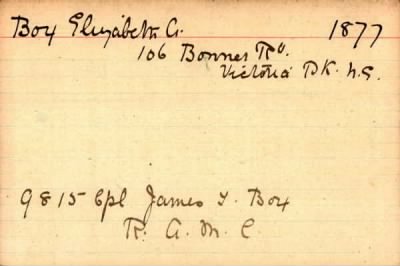 Box Elizabeth A. 1877
106 Bonner Rd.
Victoria Pk. N.E.
9815 Cpl James T. Box
R. A. M. C.